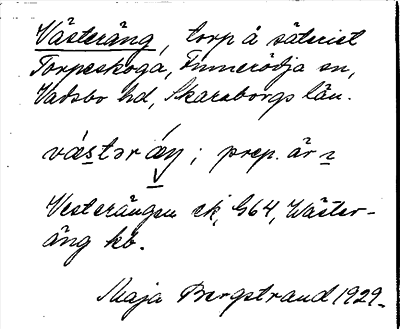 Västeräng, torp å säteriet
Torpeskoga, Finnerödja sn,
Vadsbo hd, Skaraborgs län.
västər äŋ; prep. är
Vesterängen ek, G64, Wäster-
äng kb.
Maja Bergstrand 1929.